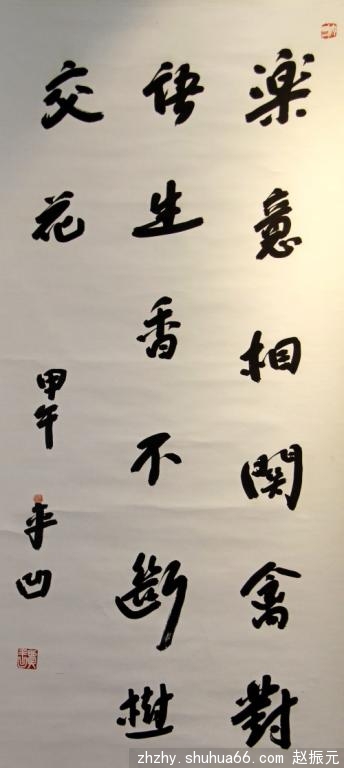 楽意相関禽對
語生香不斷樹
交花
甲午
平凹
zhzhy.shuhua66.com 赵振元